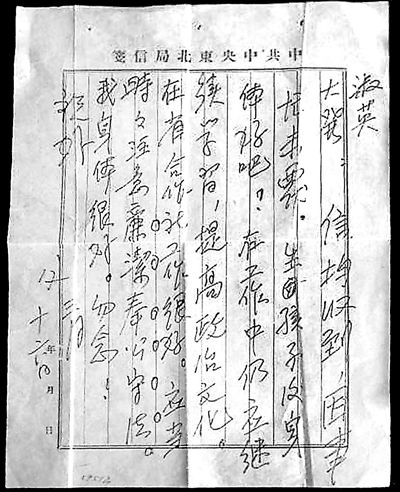 箋信局北東央中共中
淑英
大巽：信均收到，因事
忙未覆。生母孩子及身
体好吧！在工作中仍应继
续学習，提高政治文化。
在省合作社工作很好。应当
時々注意廉潔奉公守法。
我身体很好。勿念！
祝好
三月
十六日
年月日